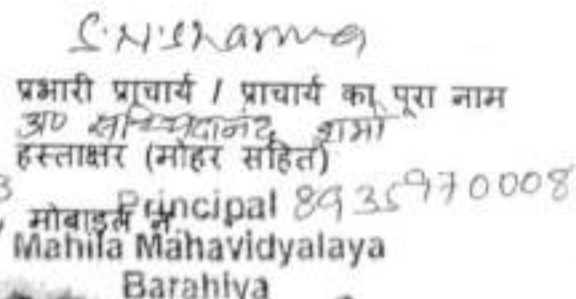 S.N.Sharma
प्रभारी प्राचार्य / प्राचार्य का पूरा नाम
डा० सच्चिदानंद शर्मा
हस्ताक्षर (मोहर सहित)
मोबाइल नं. 8935970008
Principal
Mahila Mahavidyalaya
Barahiya